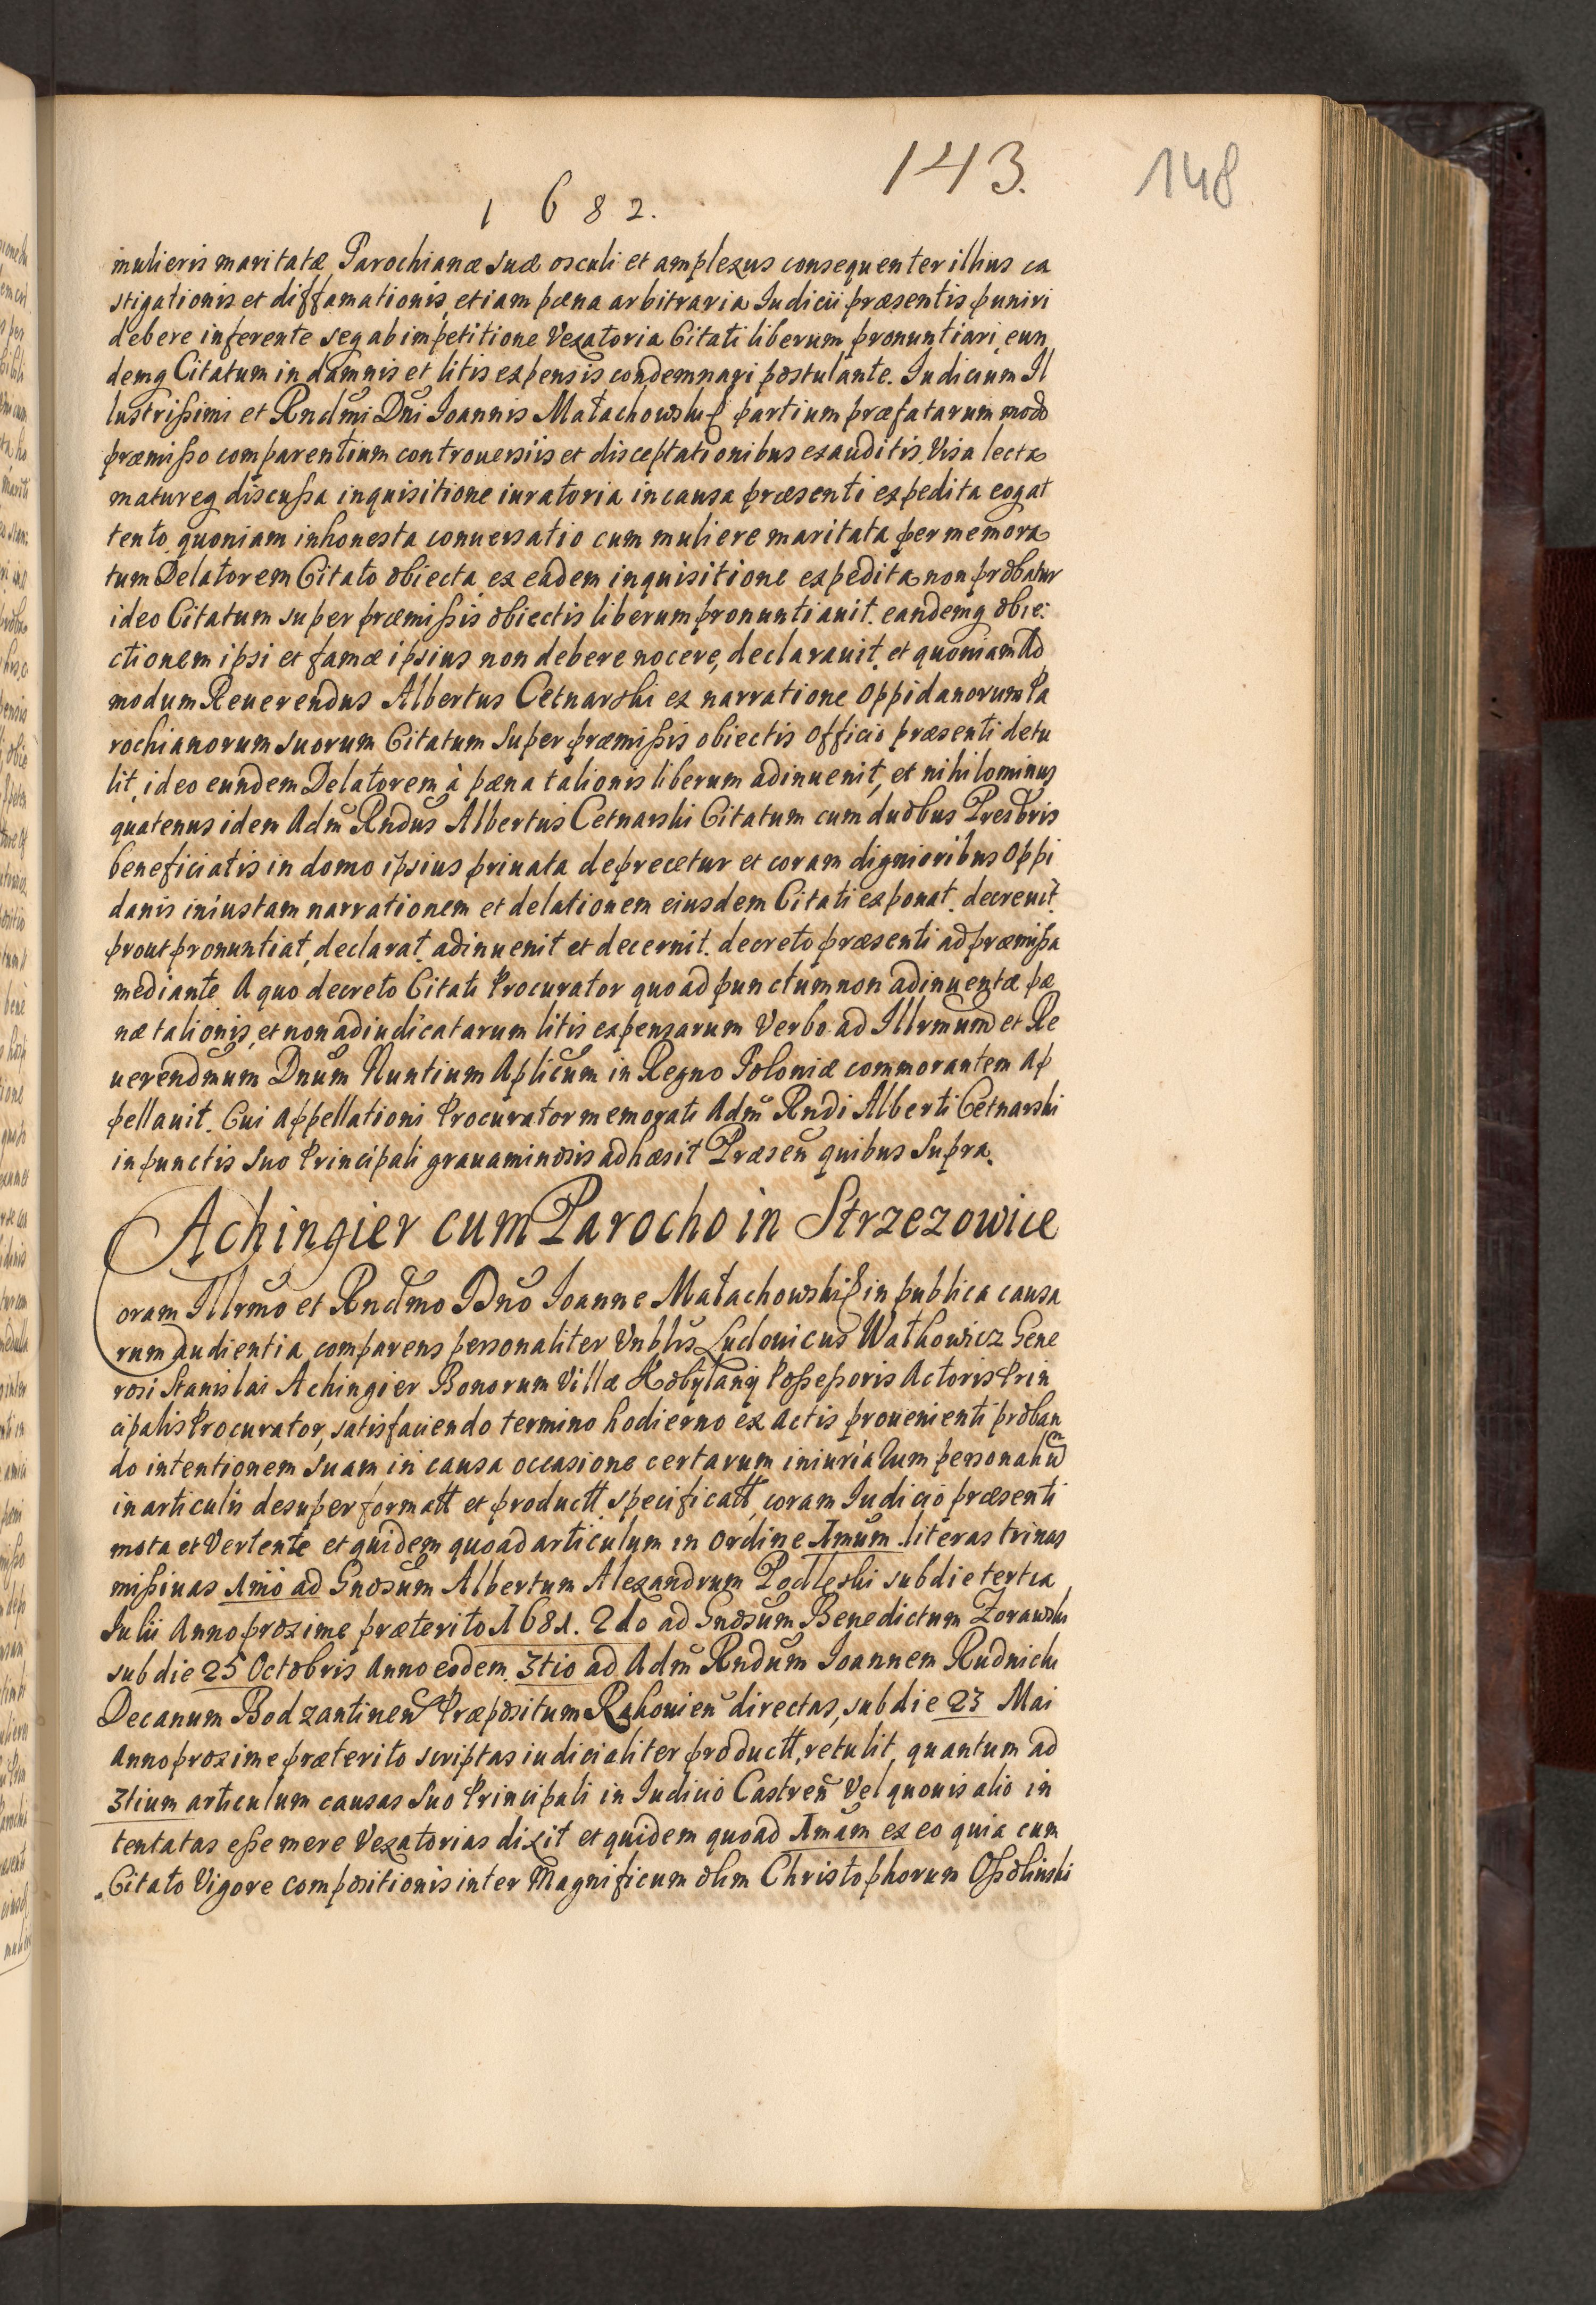 143.
148
1682.
mulieris maritatæ Parochianæ suæ osculi et amplexus consequenter illius ca
stigationis et diffamationis, etiam pæna arbitraria Iudicii præsentis puniri
debere inferente seq ab impetitione Vexatoria Citati liberum pronuntiari, eun
demq Citatum in damnis et litis expensis condemnari postulante. Iudicium Il
lustrißimi et Rndmi Dni Ioannis Małachowski partium præfatarum modo
præmißo comparentium controuersiis et disceptationibus exauditis, Visa lecta
matureq discußa inquisitione iuratoria in causa præsenti expedita eoqat
tento quoniam inhonesta conuersatio cum muliere maritata per memora
tum Delatorem Citato obiecta ex eadem inquisitione expedita non probatur
ideo Citatum super præmißis obiectis liberum pronuntiauit. eandemq obie:
ctionem ipsi et famæ ipsius non debere nocere, declarauit. et quoniam Ad
modum Reuerendus Albertus Cetnarski ex narratione Oppidanorum Pa
rochianorum suorum Citatum super præmißis obiectis Officio præsenti detu
lit, ideo eundem Delatorem à pæna talionis liberum adinuenit, et nihilominus
quatenus idem Adm Rndus Albertus Cetnarski Citatum cum duobus Presbris
beneficiatis in domo ipsius priuata deprecetur et coram dignioribus Oppi
danis iniustam narrationem et delationem eiusdem Citati exponat. decreuit.
prout pronuntiat, declarat. adinuenit et decernit. decreto præsenti ad præmißa
mediante A quo decreto Citati Procurator quoad punctum non adinuentæ pæ
næ talionis, et non adiudicatarum litis expensarum Verbo ad Illrmum et Re
uerendmum Dnum Nuntium Aplicum in Regno Poloniæ commorantem Ap
pellauit. Cui Appellationi Procurator memorati Adm Rndi Alberti Cetnarski
in punctis Suo Principali grauaminosis adhæsit Præsen quibus Supra.
Achingier cum Parocho in Strzezowice
Coram Illrmo et Rndmo Dno Ioanne Małachowski in publica causa
rum audientia comparens personaliter Vnblis Ludouicus Wałkowicz Gene
rosi Stanislai Achingier Bonorum Villæ Kobylany Poßeßoris Actoris Prin
cipalis Procurator, satisfaciendo termino hodierno ex Actis prouenienti proban
do intentionem suam in causa occasione certarum iniuria[rum] personaliu
in articulis desuper formatt et productt specificatt, coram Iudicio præsenti
mota et Vertente et quidem quoad articulum in ordine 1mum literas trinas
mißiuas 1mo ad Gnosum Albertum Alexandrum Podleski sub die tertia
Iulii Anno proxime præterito 1681. 2do ad Gnosum Benedictum Zorawski
sub die 25 Octobris Anno eodem. 3tio ad Adm Rndum Ioannem Rudnicki
Decanum Bodzantinen Præpositum Rakouien directas, sub die 23 Mai
Anno proxime præterito scriptas iudicialiter productt, retulit, quantum ad
3tium articulum causas Suo Principali in Iudicio Castren Vel quouis alio in
tentatas eße mere Vexatorias dixit et quidem quoad 1mam ex eo quia cum
Citato Vigore compositionis inter Magnificum olim Christophorum Oßolinski